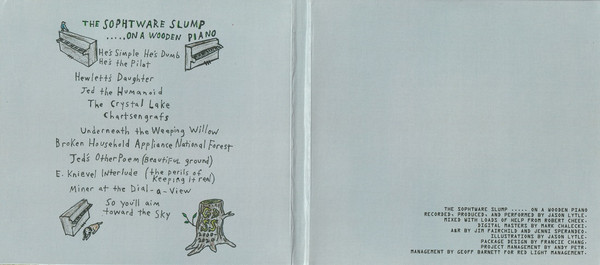 THE SOPHTWARE SLUMP
.....ON A WOODEN PIANO
He's Simple He's Dumb
He's the Pilot
Hewlett's Daughter
Jed the Humanoid
The Crystal Lake
Chartsengrafs
Underneath the Weeping Willow
Broken Household Appliance National Forest
Jed's Other Poem (Beautiful ground)
E. Knievel Interlude (the perils of
Keeping it real)
Miner at the Dial-a-View
So you'll aim
toward the Sky
THE SOPHTWARE SLUMP ..... ON A WOODEN PIANO
RECORDED, PRODUCED, AND PERFORMED BY JASON LYTLE.
MIXED WITH LOADS OF HELP FROM ROBERT CHEEK.
DIGITAL MASTERS BY MARK CHALECKI.
A&R BY JIM FAIRCHILD AND JENNI SPERANDEO.
ILLUSTRATIONS BY JASON LYTLE.
PACKAGE DESIGN BY FRANCIE CHANG.
PROJECT MANAGEMENT BY ANDY PETR.
MANAGEMENT BY GEOFF BARNETT FOR RED LIGHT MANAGEMENT.